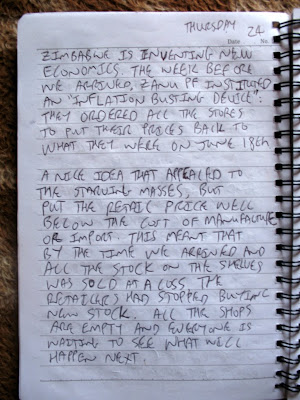 THURSDAY 24
Date No.
ZIMBABWE IS INVENTING NEW
ECONOMICS. THE WEEK BEFORE
WE ARRIVED, ZANU PF INSTITUTED
AN "INFLATION BUSTING DEVICE".
THEY ORDERED ALL THE STORES
TO PUT THEIR PRICES BACK TO
WHAT THEY WERE ON JUNE 18th
A NICE IDEA THAT APPEALED TO
THE STARVING MASSES, BUT
PUT THE RETAIL PRICE WELL
BELOW THE COST OF MANUFACTURE
OR IMPORT. THIS MEANT THAT
BY THE TIME WE ARRIVED AND
ALL THE STOCK ON THE SHELVES
WAS SOLD AT A LOSS THE
RETAILERS HAD STOPPED BUYING
NEW STOCK. ALL THE SHOPS
ARE EMPTY AND EVERYONE IS
WAITING TO SEE WHAT WILL
HAPPEN NEXT.